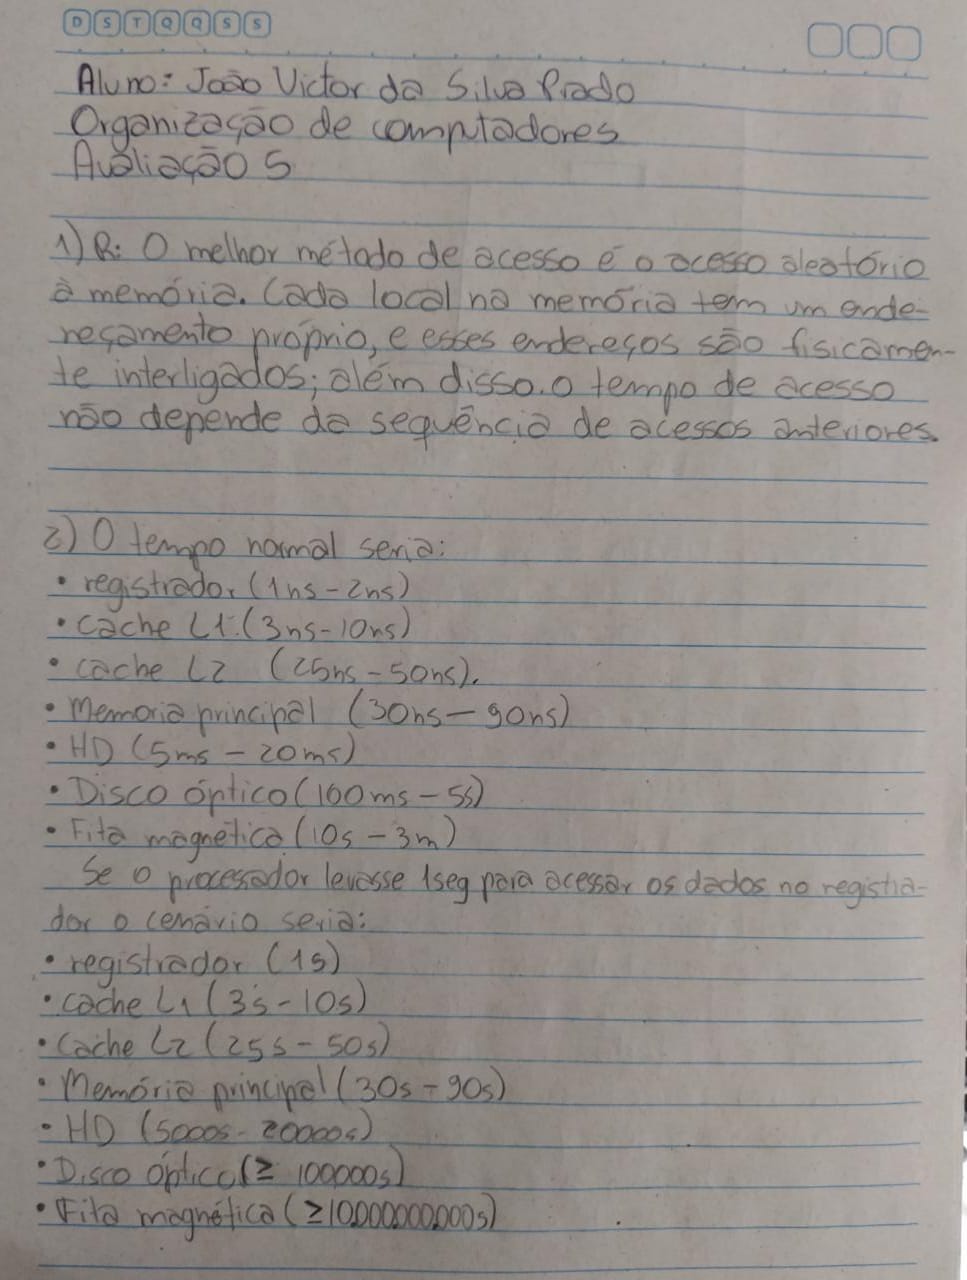 D S T Q Q S S
Aluno: João Victor da Silva Prado
Organização de computadores
Avaliação 5
1) R: O melhor método de acesso é o acesso aleatório
à memória. Cada local na memória tem um ende-
reçamento próprio, e esses endereços são fisicamen-
te interligados; além disso. o tempo de acesso
não depende da sequência de acessos anteriores.
2) O tempo normal seria:
• registrador (1ns - 2ns)
• cache L1: (3ns - 10ns)
• cache L2 (25ns - 50ns).
• Memoria principal (30ns - 90ns)
• HD (5ms - 20ms)
• Disco óptico (100ms - 5s)
• Fita magnética (10s - 3m)
Se o processador levasse 1seg para acessar os dados no registra-
dor o cenário seria:
• registrador (1s)
• cache L1 (3s - 10s)
• Cache L2 (25s - 50s)
• Memória principal (30s - 90s)
• HD (5000s - 20000s)
• Disco óptico (≥ 100000s)
• Fita magnética (≥10,000,000,000s)